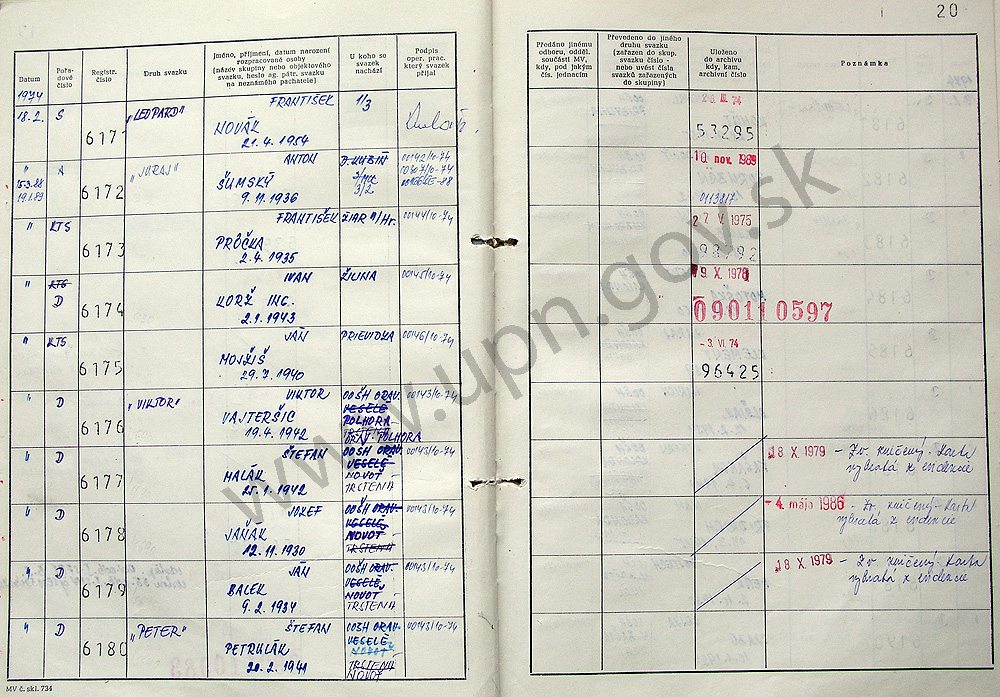 20
Datum
Pořadové číslo
Registr. číslo
Druh svazku
Jméno, příjmení, datum narození rozpracované osoby (název skupiny nebo objektového svazku, heslo ag. pátr. svazku na neznámého pachatele)
U koho se svazek nachází
Podpis oper. prac. který svazek přijal
Předáno jinému odboru, odděl. součásti MV, kdy, pod jakým čís. jednacím
Převedeno do jiného druhu svazku (zařazen do skup. svazku číslo - nebo uvést čísla svazků zařazených do skupiny)
Uloženo do archivu kdy, kam, archivní číslo
Poznámka
1974
18.2. S 6171 "LEOPARD" FRANTIŠEK 1/3
NOVÁK
21.4.1954
26 III 74
53295
" A 6172 "JURAJ" ANTON D. KUBÍN 00142/10-74
15.3.88
19.1.89
ŠUMSKÝ
9.11.1936
3/2
10 nov. 1989
" KTS 6173 FRANTIŠEK ŽIAR n/Hr. 00144/10-74
PRÓČKA
2.4.1935
27 V 1975
98792
" KTS D 6174 IVAN ŽILINA 00145/10-74
KORŽ ING.
2.1.1943
19 X 1978
090110597
" KTS 6175 JÁN PRIEVIDZA 00146/10-74
MOJŽIŠ
29.7.1940
-3 VI 74
96425
" D 6176 "VIKTOR" VIKTOR OOŠH ORAV. 00143/10-74
VAJTERŠIC VESELÉ
19.4.1942 POLHORA
TRSTENÁ
ORAV. POLHORA
" D 6177 ŠTEFAN OOŠH ORAV. 00143/10-74
MALÁK VESELÉ
25.1.1942 NOVOŤ
TRSTENÁ
18 X 1979 - Zv. zničený. Karta
vybratá z evidencie
" D 6178 JOZEF OOŠH ORAV. 00143/10-74
JAŇÁK VESELÉ
12.11.1930 NOVOŤ
TRSTENÁ
- 4. mája 1986 - Zv. zničený. Karta
vybratá z evidencie
" D 6179 JÁN OOŠH ORAV. 00143/10-74
BALEK VESELÉ
9.2.1934 NOVOŤ
TRSTENÁ
18 X 1979 - Zv. zničený. Karta
vybratá z evidencie
" D 6180 "PETER" ŠTEFAN OOŠH ORAV. 00143/10-74
PETRULÁK VESELÉ
20.2.1941 NOVOŤ
TRSTENÁ
NOVOŤ
MV č. skl. 734
www.upn.gov.sk